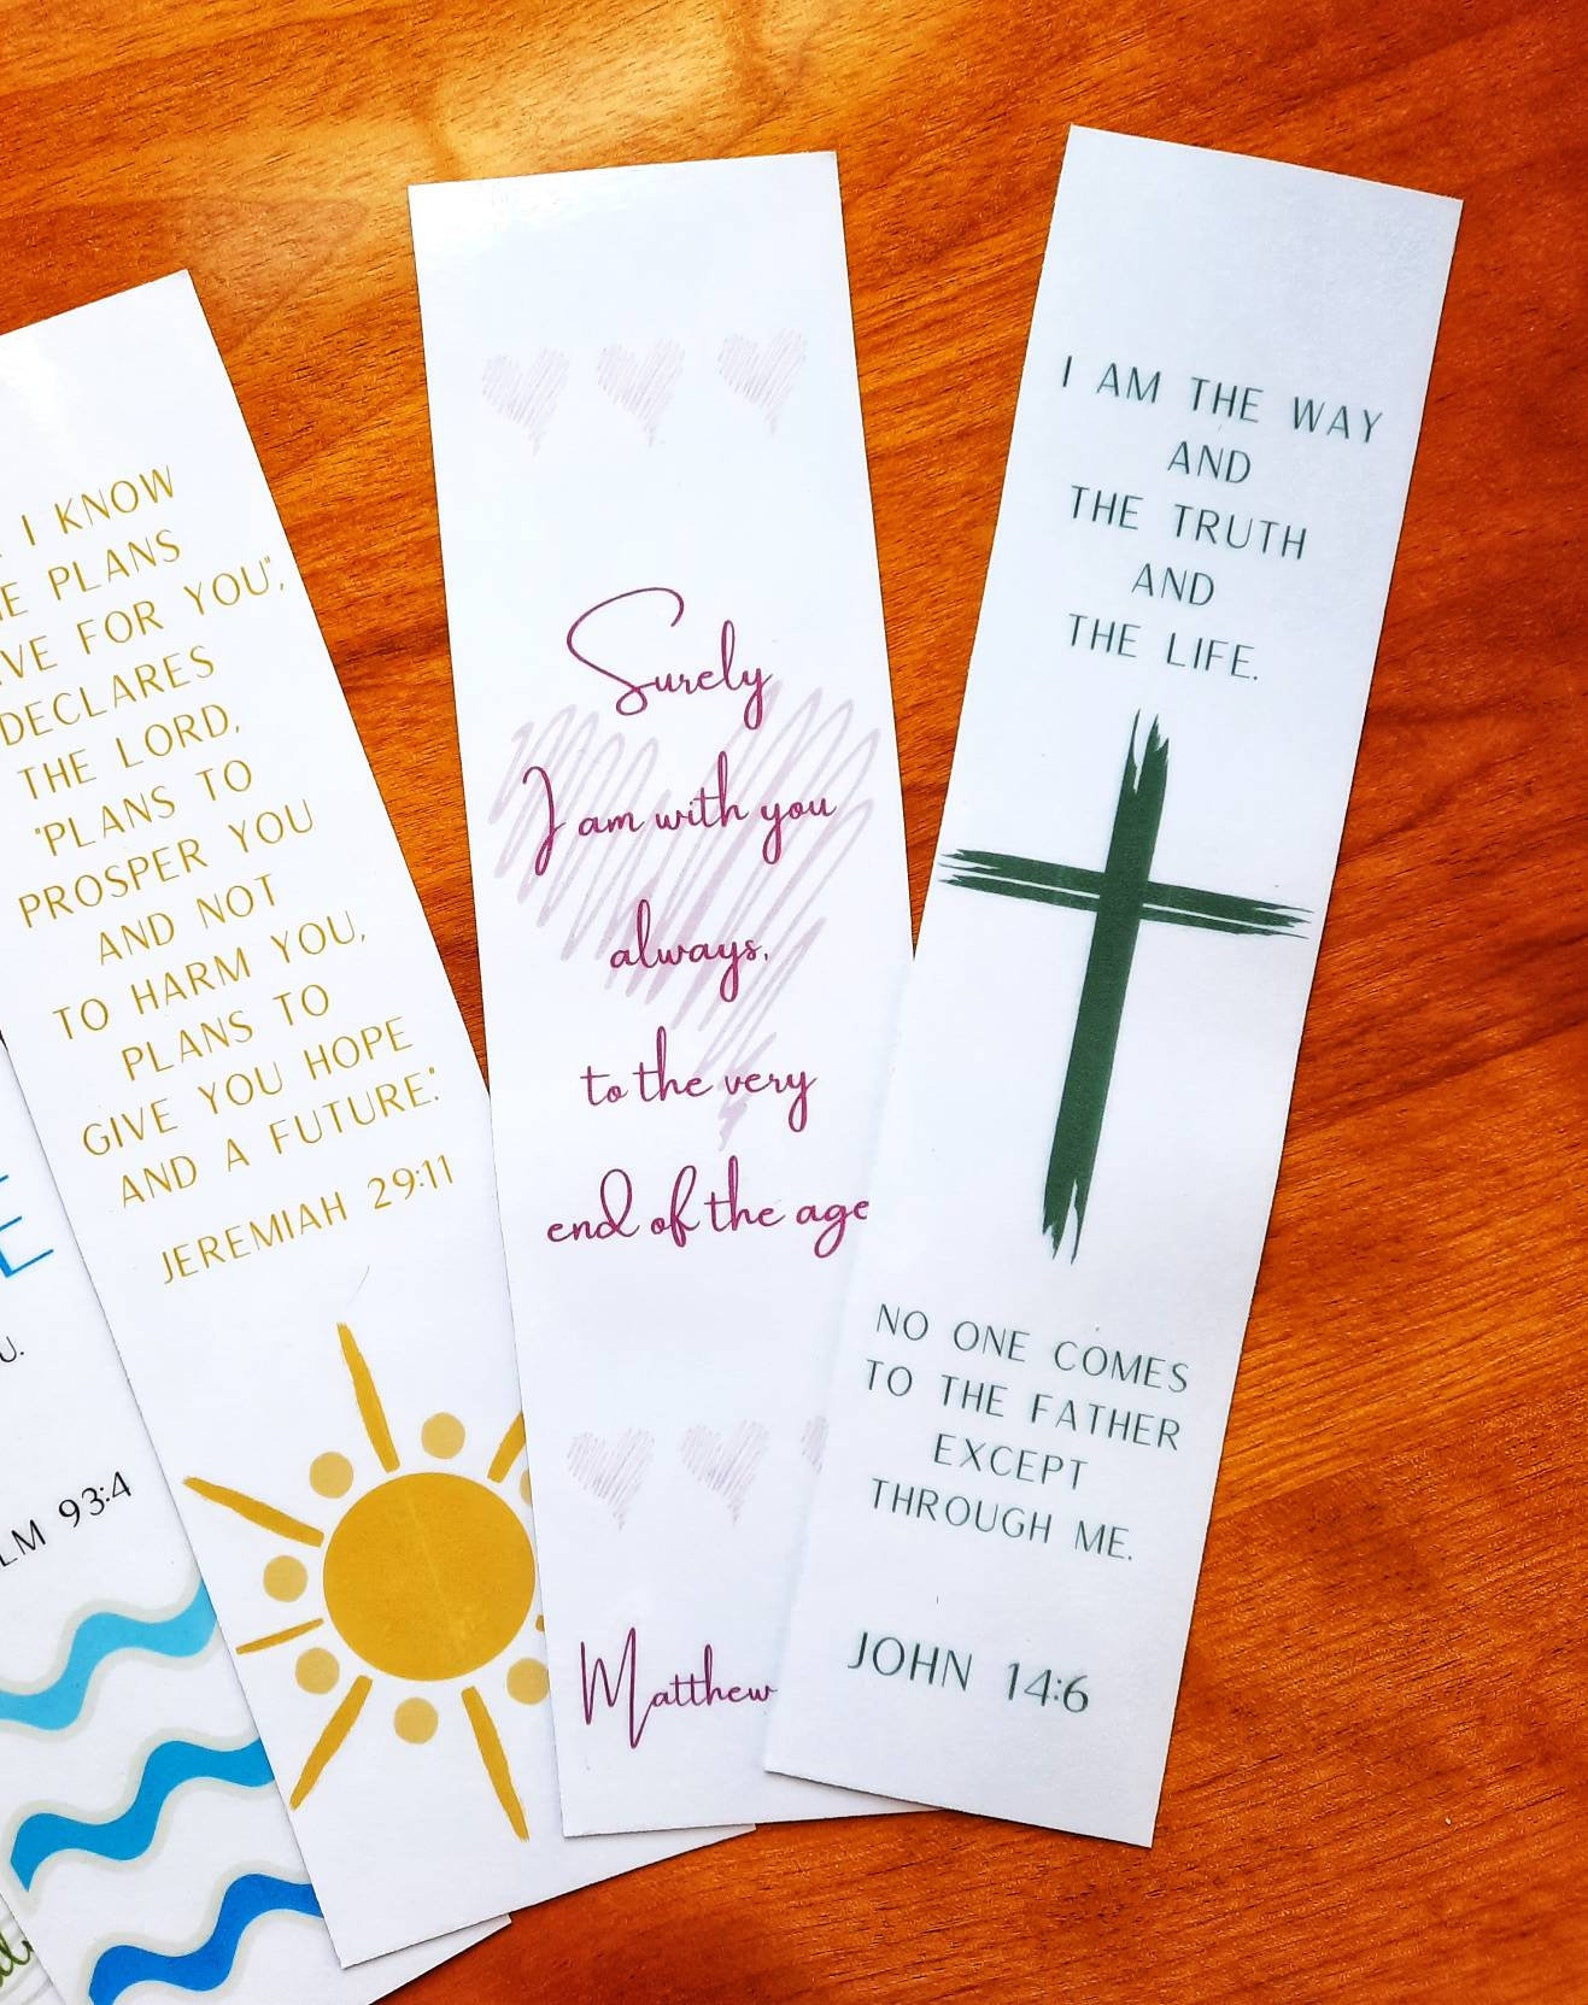 I KNOW
PLANS
FOR YOU",
DECLARES
THE LORD,
"PLANS TO
PROSPER YOU
AND NOT
TO HARM YOU,
PLANS TO
GIVE YOU HOPE
AND A FUTURE."
JEREMIAH 29:11
93:4
Surely
I am with you
always,
to the very
end of the age
Matthew
I AM THE WAY
AND
THE TRUTH
AND
THE LIFE.
NO ONE COMES
TO THE FATHER
EXCEPT
THROUGH ME.
JOHN 14:6